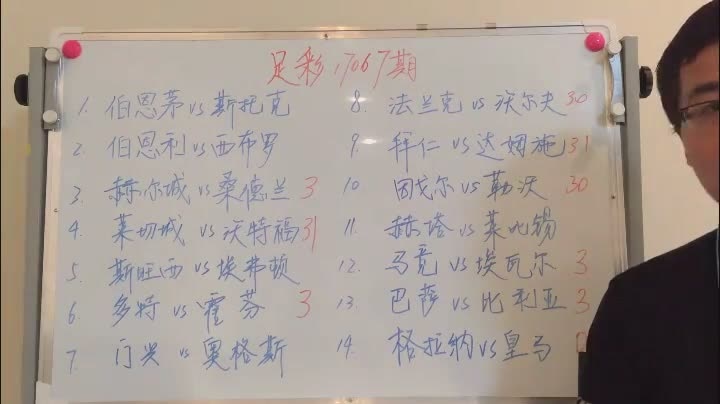 足彩17067期
1. 伯恩茅vs斯托克
2. 伯恩利vs西布罗
3. 赫尔城vs桑德兰 3
4. 莱切城vs沃特福 31
5. 斯旺西vs埃弗顿
6. 多特vs霍芬 3
7. 门兴vs奥格斯
8. 法兰克vs沃尔夫 30
9. 拜仁vs达姆施 31
10. 因戈尔vs勒沃 30
11. 赫塔vs莱比锡
12. 马竞vs埃瓦尔 3
13. 巴萨vs比利亚 3
14. 格拉纳vs皇马